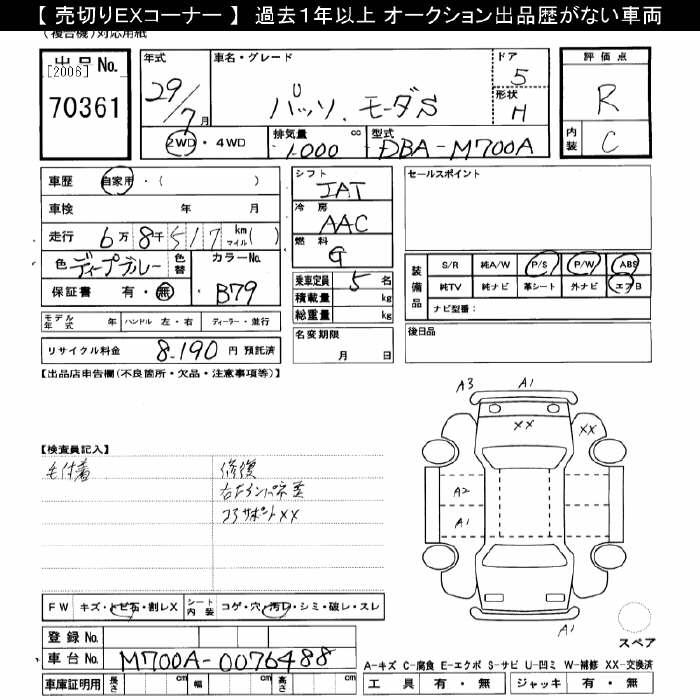 【 売切りEXコーナー 】 過去１年以上 オークション出品歴がない車両
(複合機)対応用紙
出品No.
[2006]
70361
年式
29/7月
車名・グレード
パッソ. モーダS
ドア
5
形状
H
評価点
R
内装
C
2WD・4WD
排気量 cc
1.000
型式
DBA-M700A
車歴 自家用・( )
車検 年 月
走行 6万8千517km マイル( )
色 ディープグレー
色替
カラーNo.
B79
保証書 有・無
シフト
IAT
冷房
AAC
燃料
G
乗車定員 5名
積載量 kg
総重量 kg
セールスポイント
装備品
S/R 純A/W P/S P/W ABS
純TV 純ナビ 革シート 外ナビ エアB
ナビ型番:
モデル年式 年 ハンドル 左・右 ディーラー・並行
リサイクル料金 8.190円 預託済
名変期限
月 日
後日品
【出品店申告欄(不良箇所・欠品・注意事項等)】
A3 A1
XX XX
【検査員記入】
毛付着
修復
コアサポートXX
A2
A1
A1
FW キズ・トビ石・割レX
シート内装 コゲ・穴・汚レ・シミ・破レ・スレ
スペア
登録No.
車台No. M700A-0076488
A-キズ C-腐食 E-エクボ S-サビ U-凹ミ W-補修 XX-交換済
車庫証明用 長さ cm 幅 cm 高さ cm
工具 有・無 ジャッキ 有・無